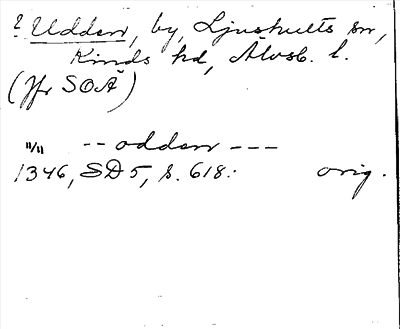 ? Udden, by, Ljushults sn,
Kinds hd, Älvsb. l.
(Jfr SOÄ)
11/11 -- odden ---
1346, SD 5, s. 618. orig.